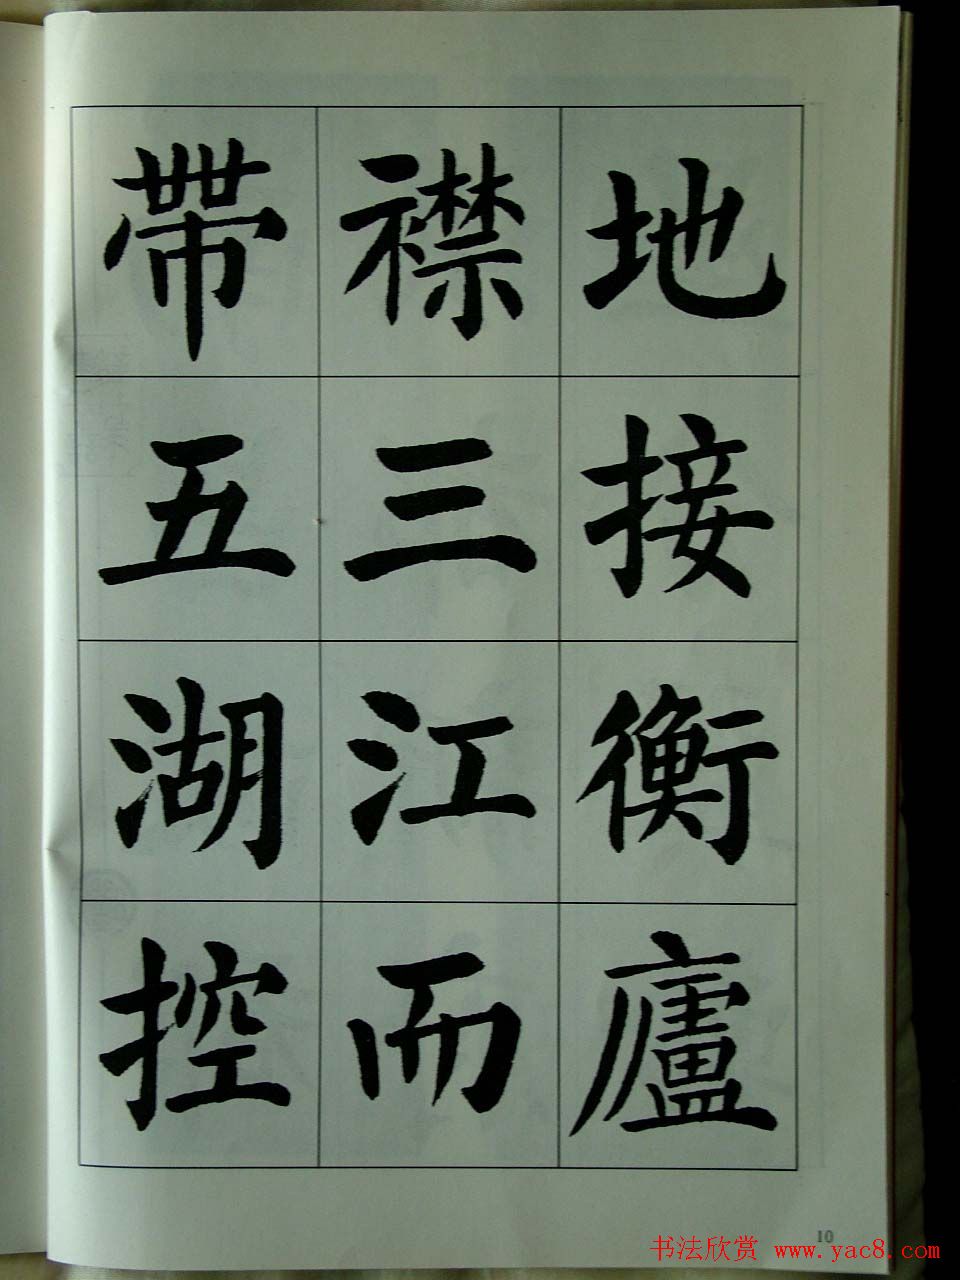 地接衡廬
襟三江而
帶五湖控
10
书法欣赏 www.yac8.com